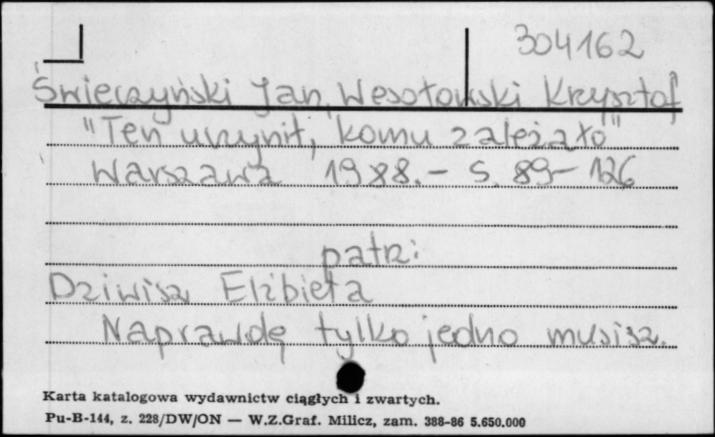 304162
Świeczyński Jan, Wesołowski Krzysztof
"Ten uczynił, komu zależało"
Warszawa 1988. - S. 89-126
patrz:
Dziwisz Elżbieta
Naprawdę tylko jedno musisz.
Karta katalogowa wydawnictw ciągłych i zwartych.
Pu-B-144, z. 228/DW/ON — W.Z.Graf. Milicz, zam. 388-86 5.650.000